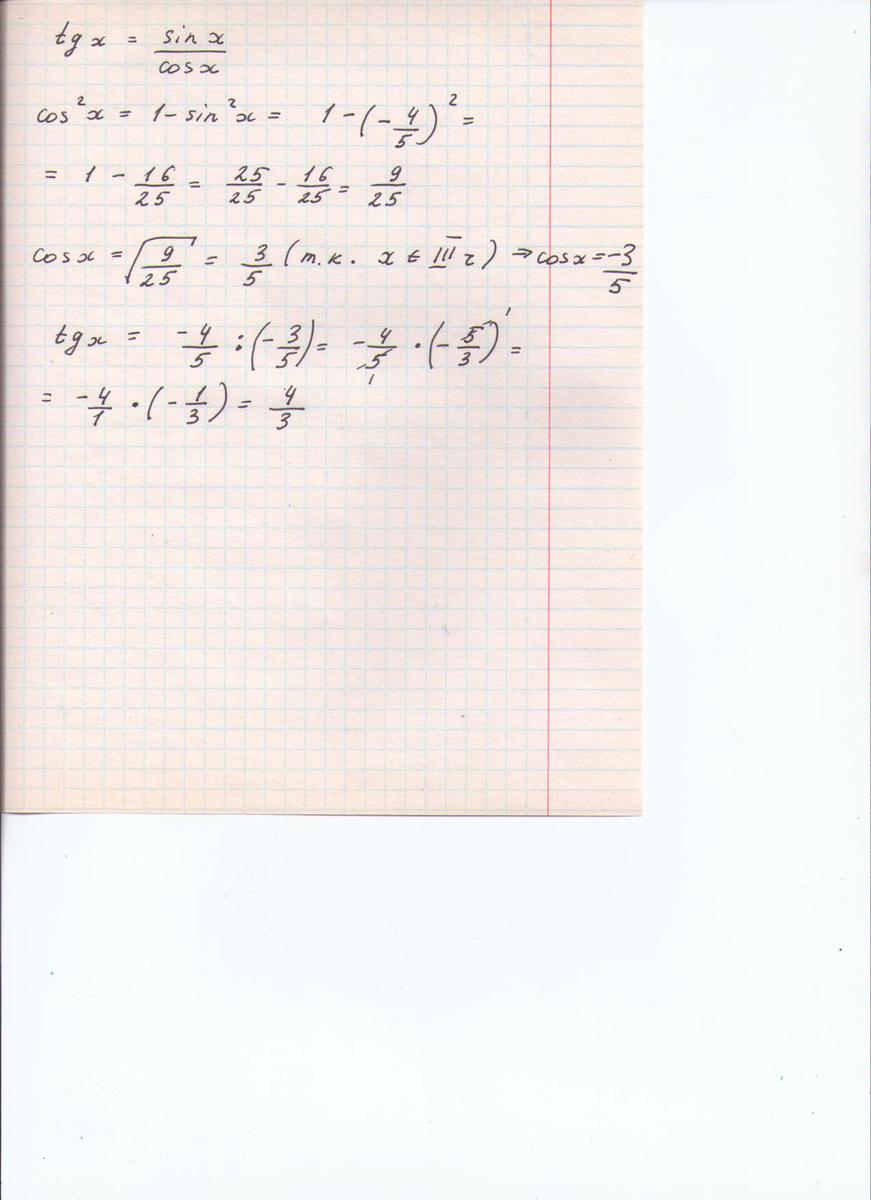 tg x = sin x / cos x
cos²x = 1 - sin²x = 1 - (-4/5)² =
= 1 - 16/25 = 25/25 - 16/25 = 9/25
cos x = √(9/25) = 3/5 (т.к. x ∈ III г) ⇒ cos x = -3/5
tg x = -4/5 : (-3/5) = -4/5 · (-5/3) =
= -4/1 · (-1/3) = 4/3